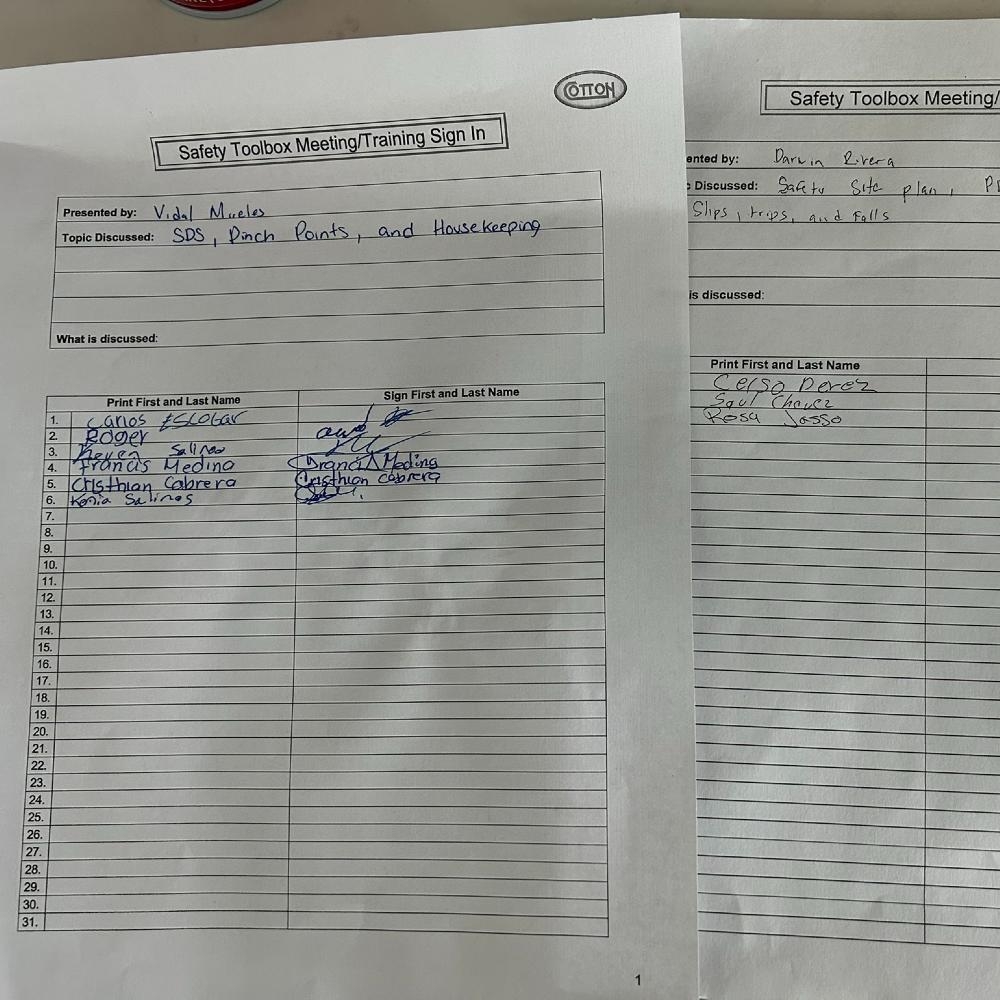 COTTON
Safety Toolbox Meeting/Training Sign In
Presented by: Vidal Mireles
Topic Discussed: SDS, Pinch Points, and Housekeeping
What is discussed:
Print First and Last Name Sign First and Last Name
1. Carlos Escobar
2. Roger
3. Keven Salinas
4. Francis Medina Francis Medina
5. Cristhian Cabrera Cristhian Cabrera
6. Kenia Salinas
7.
8.
9.
10.
11.
12.
13.
14.
15.
16.
17.
18.
19.
20.
21.
22.
23.
24.
25.
26.
27.
28.
29.
30.
31.
1
Safety Toolbox Meeting/
ented by: Darwin Rivera
Discussed: Safety Site plan,
Slips, trips, and Falls
is discussed:
Print First and Last Name
Celso Perez
Saul Chavez
Rosa Jasso